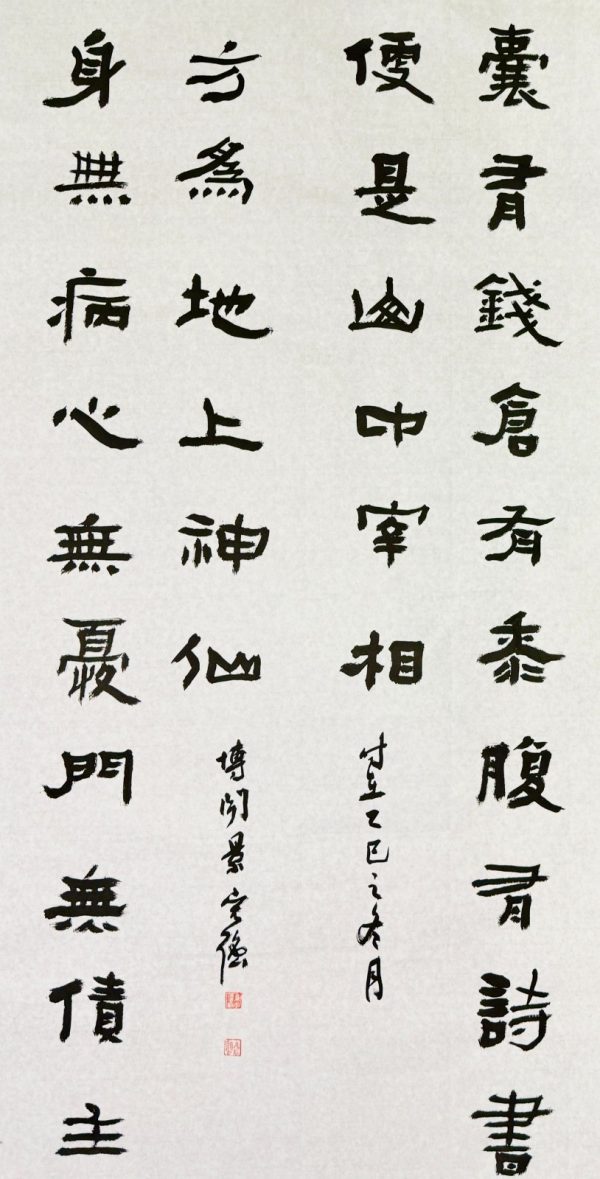 囊有錢倉有黍腹有詩書
便是山中宰相
時在乙巳之冬月
身無病心無憂門無債主
方爲地上神仙
博 景